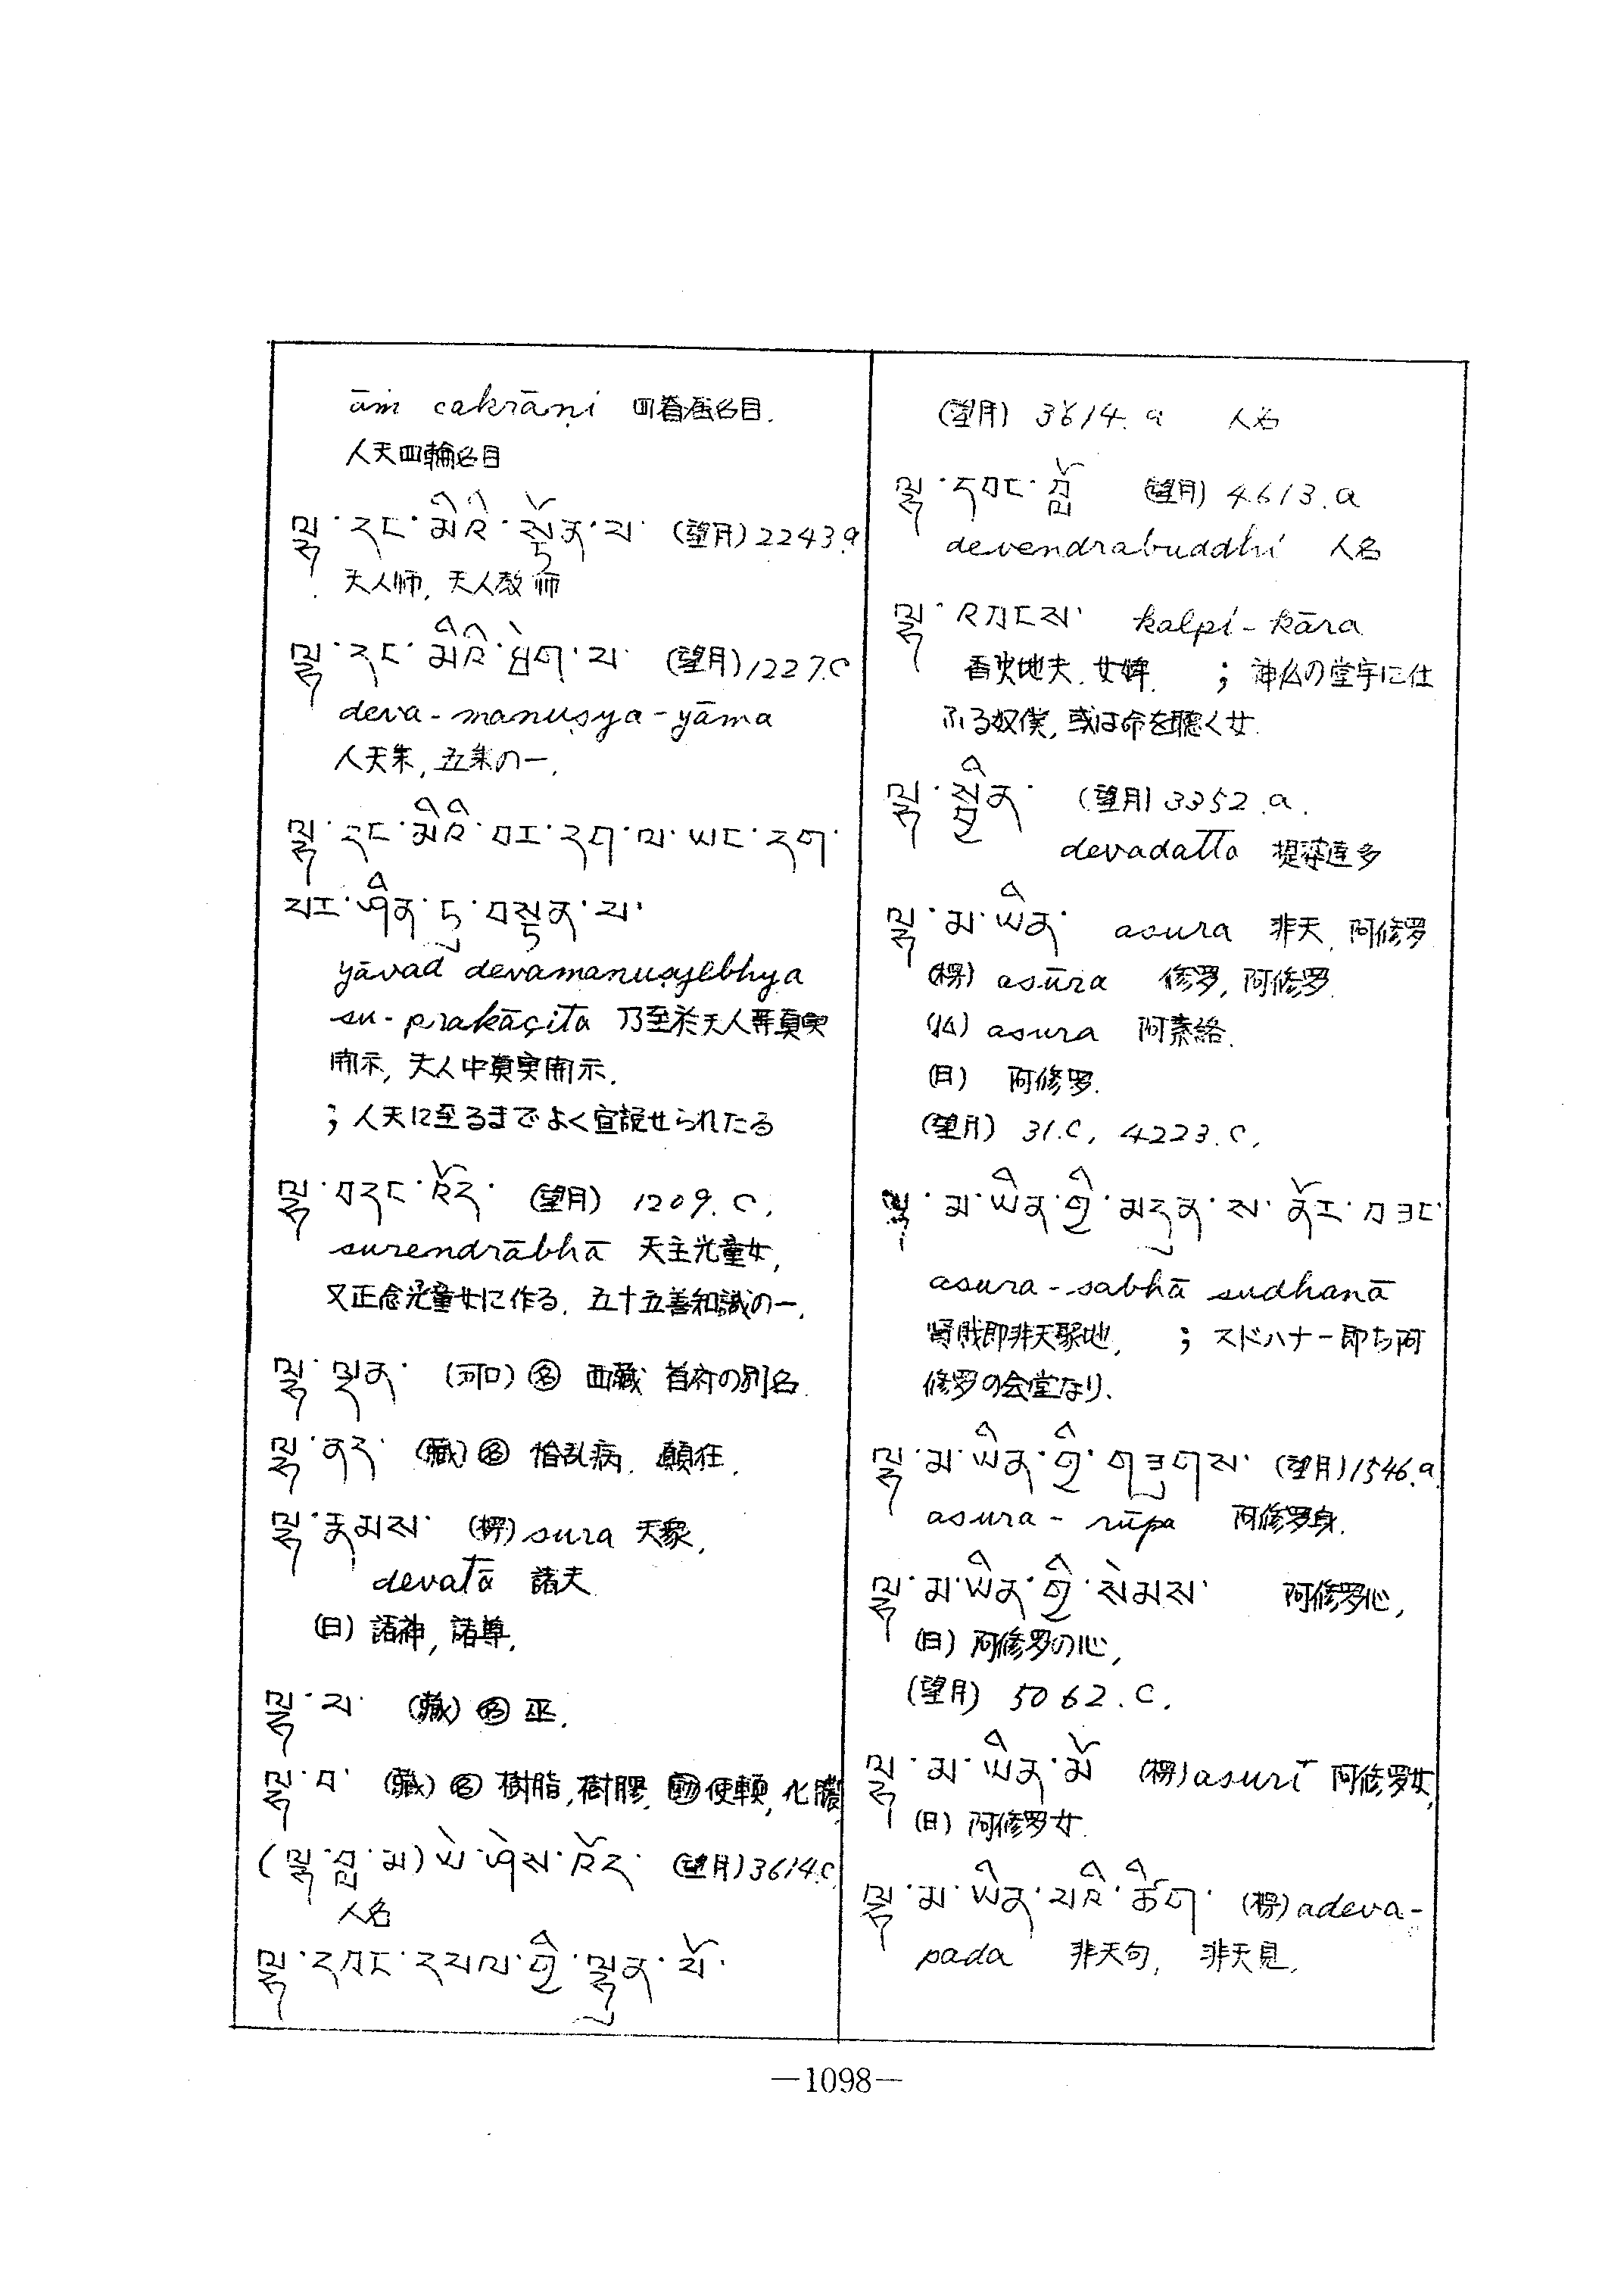 āṁ cakrāṇi 四眷属名目.
人天四輪名目
ལྷ་དང་མིའི་སྟོན་པ་ (望月) 2243.a
天人师, 天人教师
ལྷ་དང་མིའི་ཐེག་པ་ (望月) 1227.C
deva-manuṣya-yāma
人天乗, 五乗の一.
ལྷ་དང་མིའི་བར་དག་ལ་ཡང་དག་
པར་ཤིན་ཏུ་བསྟན་པ་
yāvad devamanuṣyebhya
su-prakāçita 乃至於天人等真実
開示, 天人中真実開示.
; 人天に至るまでよく宣説せられたる
ལྷ་བདང་འོད་ (望月) 1209.C.
surendrābhā 天主光童女,
又正念光童女に作る. 五十五善知識の一.
ལྷ་ལྡན་ (河口) 名 西藏 首府の別名.
ལྷ་ནད་ (藏) 名 恰乱病. 顛狂.
ལྷ་རྣམས་ (榊) sura 天衆,
devatā 諸天
(日) 諸神, 諸尊.
ལྷ་པ་ (藏) 名 巫.
ལྷ་བ་ (藏) 名 樹脂, 樹膠. 動 使輭, 化膿
(ལྷ་བླ་མ) ཡེ་ཤེས་འོད་ (望月) 3614.C
人名
ལྷ་དབང་དཔལ་གྱི་ལྷུན་པོ་
(望月) 3614.a 人名
ལྷ་དབང་བློ (望月) 4613.a
devendrabuddhi 人名
ལྷ་འབངས་ kalpi-kāra
香火地夫. 女婢. ; 神仏の堂宇に仕
ふる奴僕, 或は命を聴く女.
ལྷ་སྦྱིན་ (望月) 3352.a.
devadatta 提婆達多
ལྷ་མ་ཡིན་ asura 非天, 阿修罗
(榊) asūra 修罗, 阿修罗.
(仏) asura 阿素絡.
(日) 阿修罗.
(望月) 31.C, 4223.C,
ལྷ་མ་ཡིན་གྱི་མདུན་ས་ནོར་བཟང་
asura-sabhā sudhanā
腎哦即非天聚地, ; スドハナー即ち阿
修罗の会堂なり.
ལྷ་མ་ཡིན་གྱི་གཟུགས་ (望月) 1546.a
asura-rūpa 阿修罗身.
ལྷ་མ་ཡིན་གྱི་སེམས་ 阿修罗心,
(日) 阿修罗の心,
(望月) 5062.C.
ལྷ་མ་ཡིན་མོ (榊) asurī 阿修罗女,
(日) 阿修罗女.
ལྷ་མ་ཡིན་པའི་ཚིག་ (榊) adeva-
pada 非天句, 非天見.
—1098—